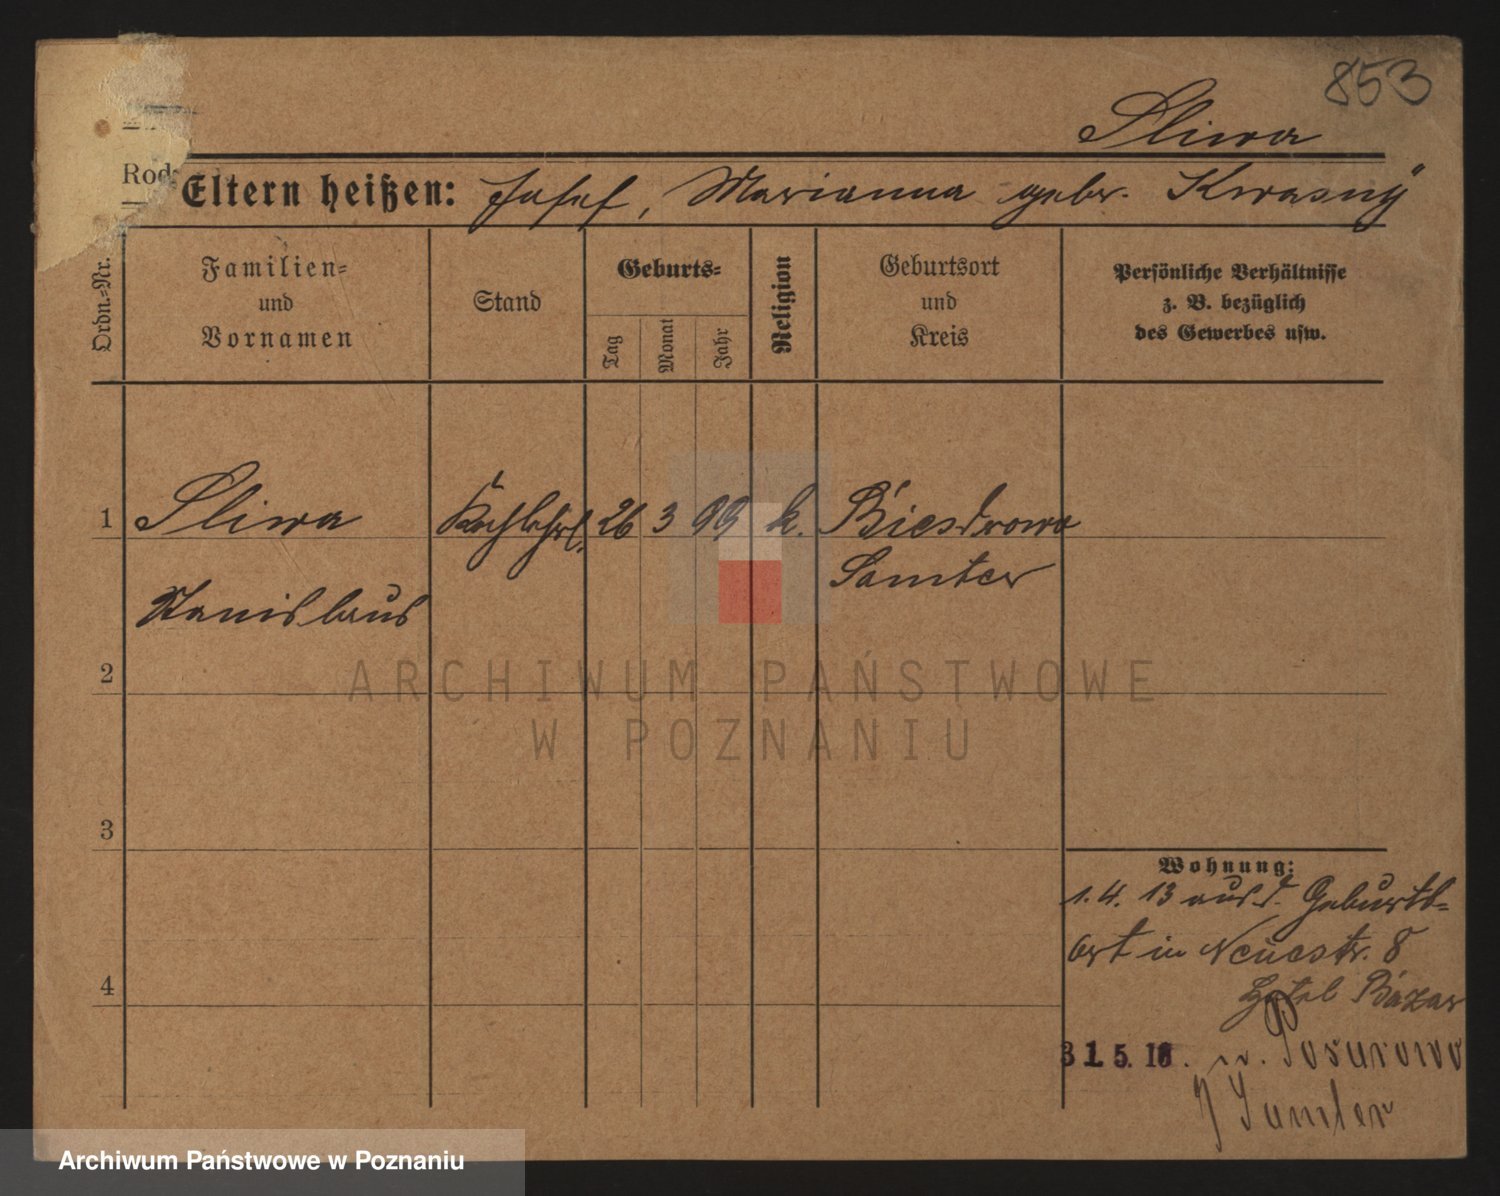 853
Sliwa
Rod
Eltern heißen: Josef, Marianna gebr. Kwasny
Ordn.-Nr.
Familien-
und
Vornamen
Stand
Geburts-
Tag
Monat
Jahr
Religion
Geburtsort
und
Kreis
Persönliche Verhältnisse
z. B. bezüglich
des Gewerbes usw.
1 Sliwa Kochlehrl. 26 3 99 k. Biesdrowo
Samter
Stanislaus
2
3
4
Wohnung:
1.4.13 aus d. Geburts-
ort in Neuestr. 8
Hotel Bazar
31.5.16. n.
Samter
ARCHIWUM PAŃSTWOWE
W POZNANIU
Archiwum Państwowe w Poznaniu